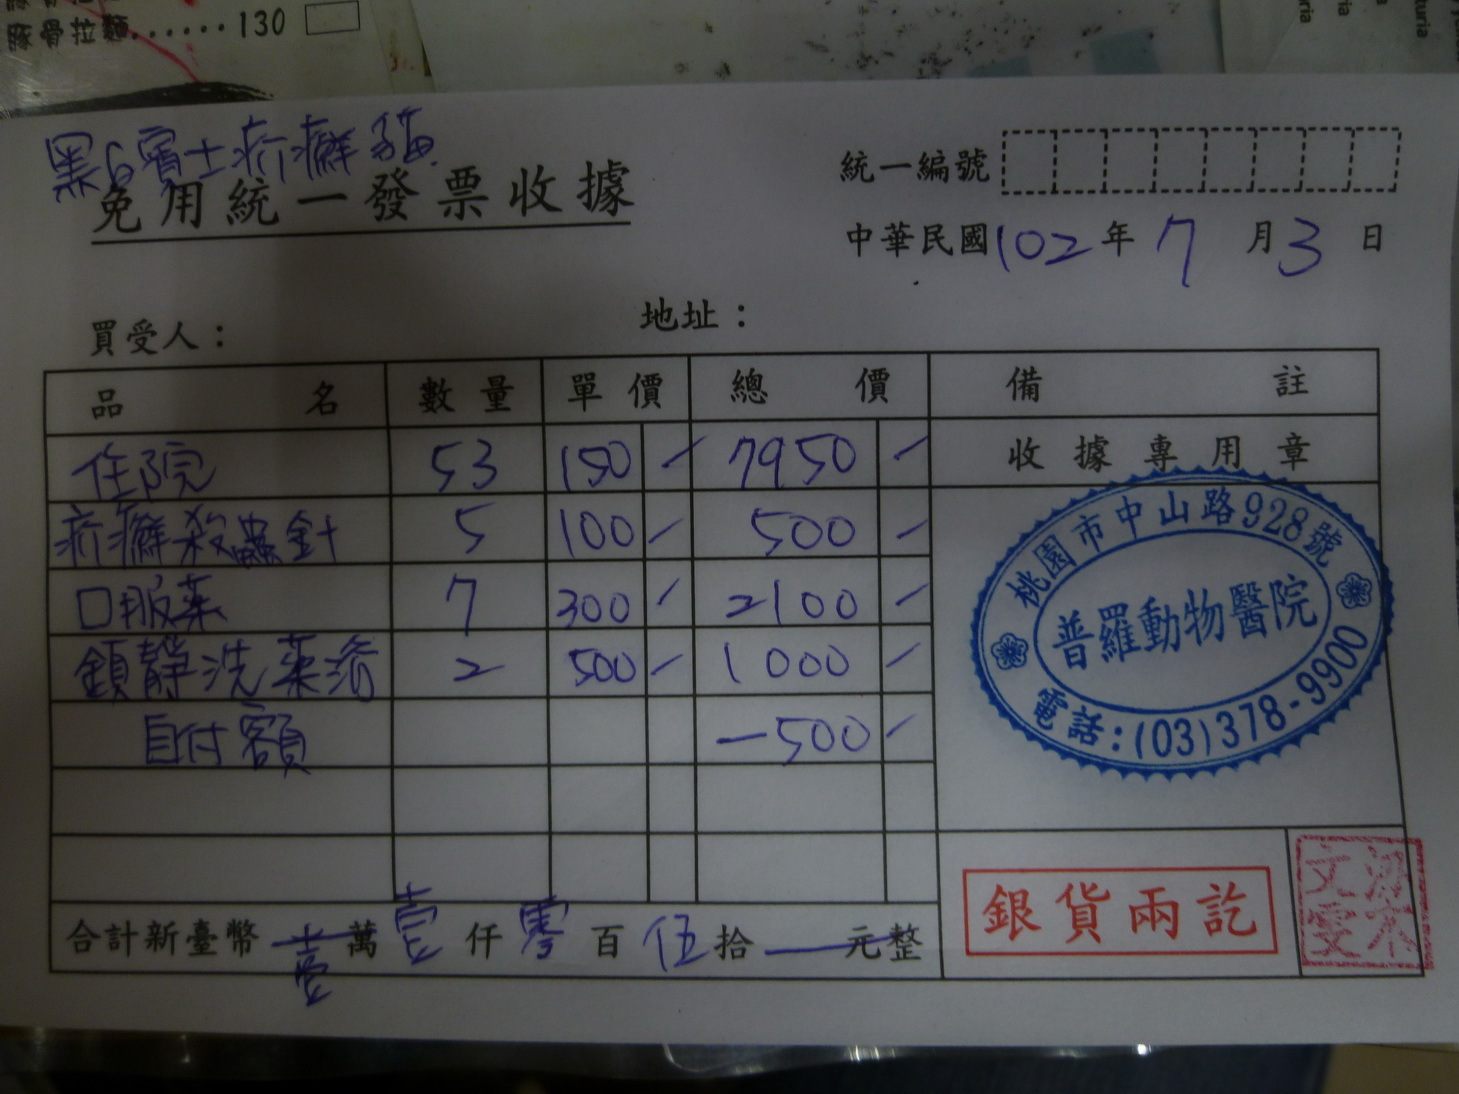 豚骨拉麵......130
turia
turia
黑白賓士疥癬貓
免用統一發票收據
統一編號
中華民國102年7月3日
買受人：
地址：
品名 數量 單價 總價 備註
住院 53 150 7950
收據專用章
疥癬殺蟲針 5 100 500
口服藥 7 300 2100
鎮靜洗藥澡 2 500 1000
自付額 -500
桃園市中山路928號
普羅動物醫院
電話:(03)378-9900
合計新臺幣壹萬壹仟零百伍拾元整
銀貨兩訖